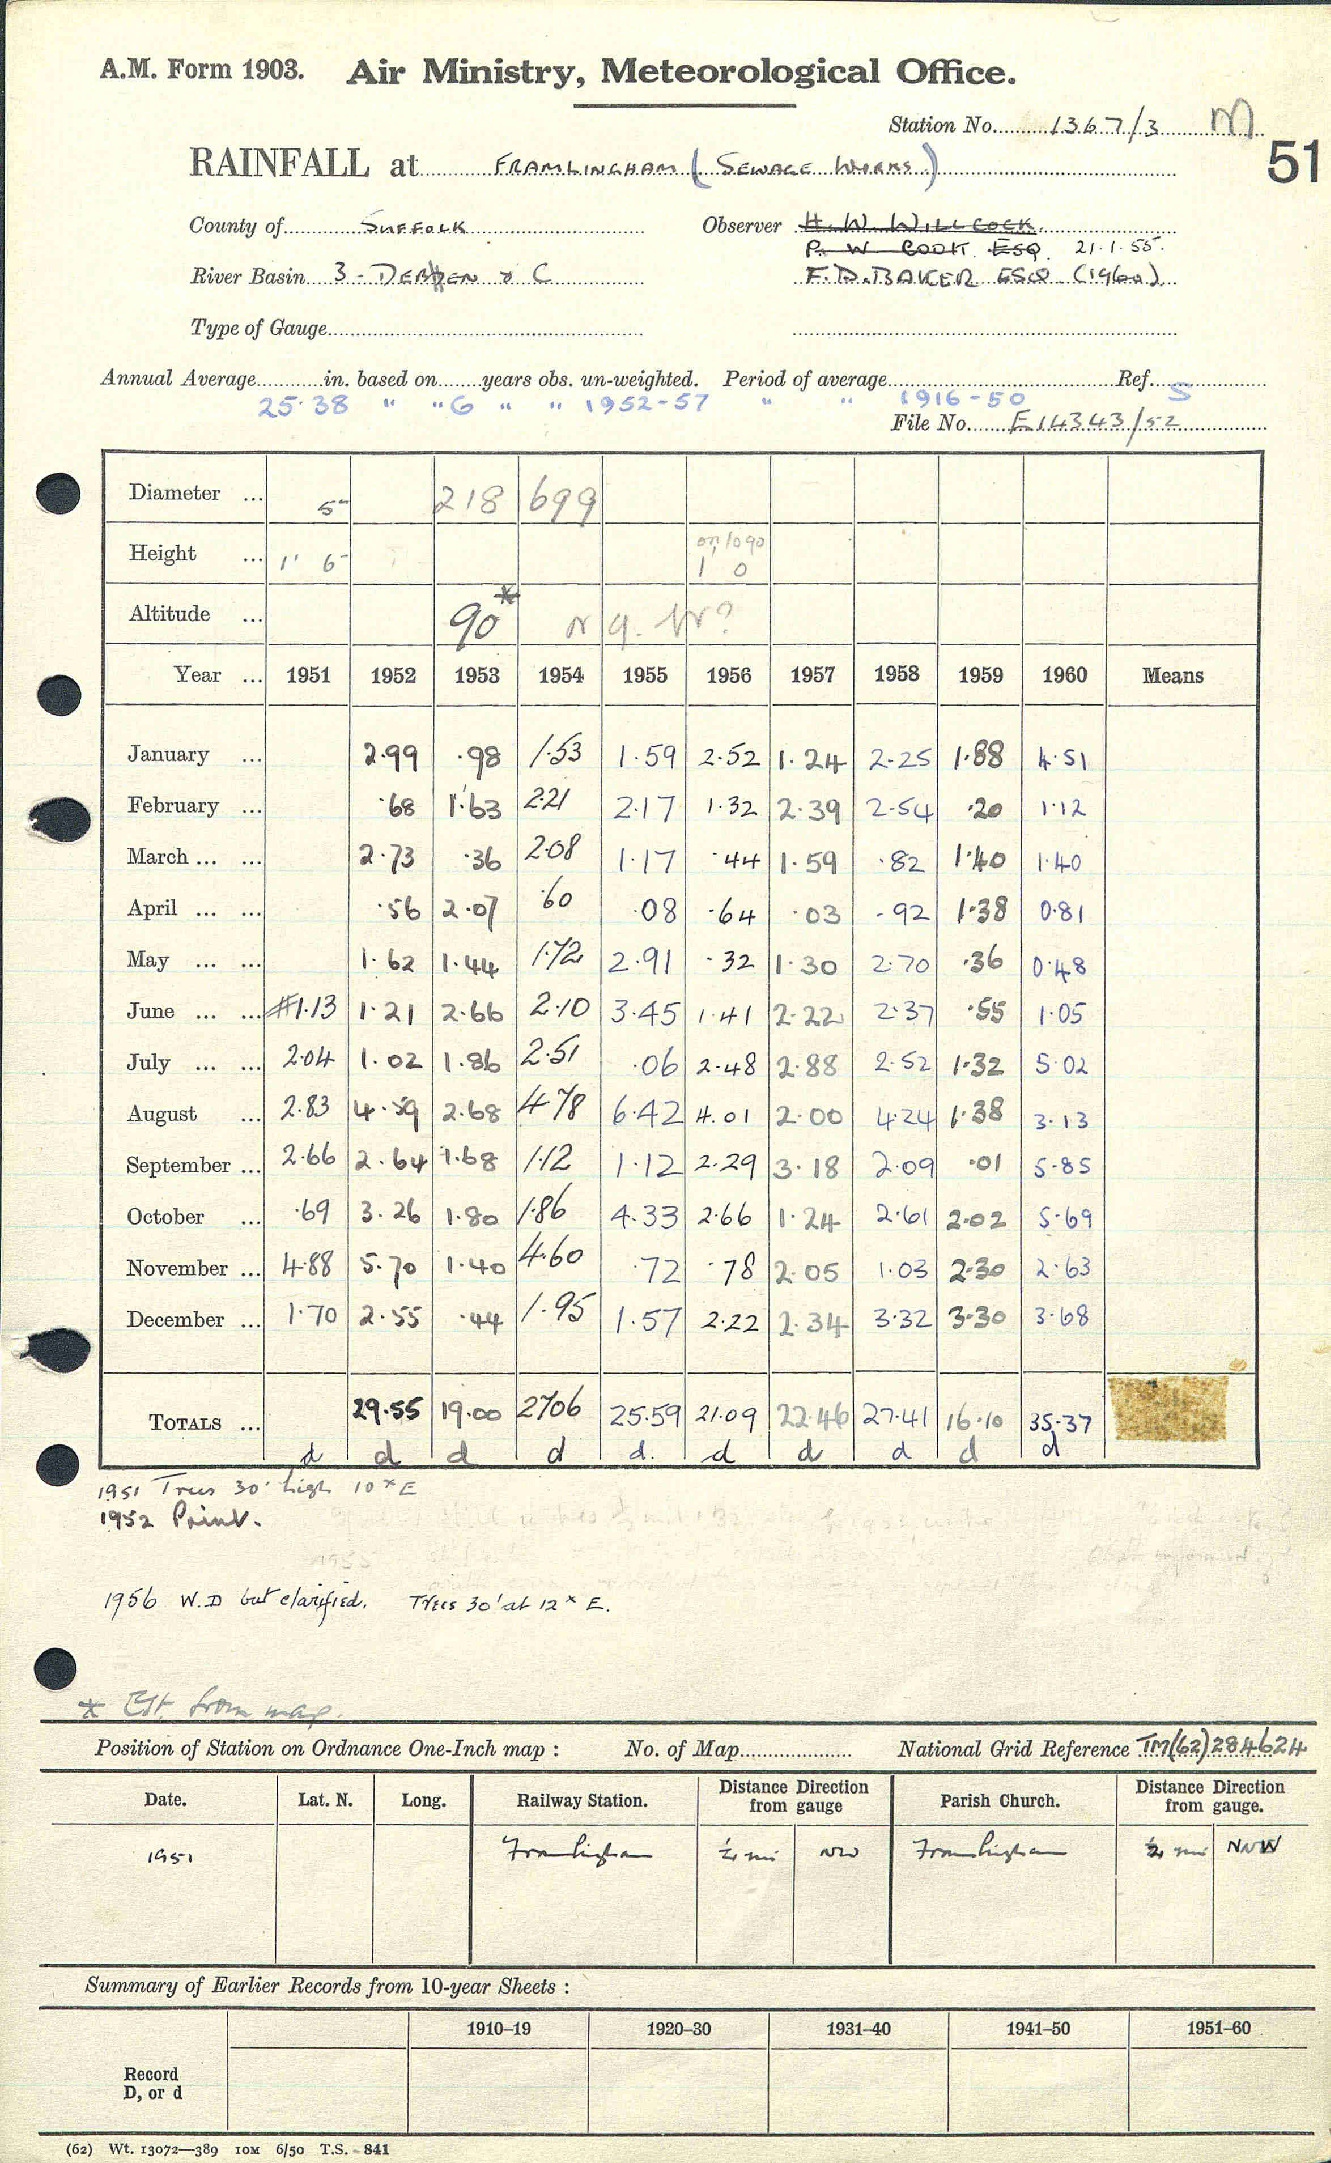 A.M. Form 1903. Air Ministry, Meteorological Office.
Station No. 1367/3 M
51
RAINFALL at FRAMLINGHAM (SEWAGE WORKS)
County of SUFFOLK Observer H. W. WILLCOCK.
P. W COOK ESQ 21.1.55.
River Basin 3 - DEBEN & C F.D. BAKER ESQ (1960)
Type of Gauge
Annual Average in. based on years obs. un-weighted. Period of average Ref. S
25.38 " " 6 " " 1952-57 " " 1916-50
File No. E14343/52
Diameter ... 5 218 699
Height ... 1' 6 1 0
Altitude ... 90*
Year ... 1951 1952 1953 1954 1955 1956 1957 1958 1959 1960 Means
January ... 2.99 .98 1.53 1.59 2.52 1.24 2.25 1.88 4.51
February ... .68 1.63 2.21 2.17 1.32 2.39 2.54 .20 1.12
March ... ... 2.73 .36 2.08 1.17 .44 1.59 .82 1.40 1.40
April ... ... .56 2.07 .60 .08 .64 .03 .92 1.38 0.81
May ... ... 1.62 1.44 1.72 2.91 .32 1.30 2.70 .36 0.48
June ... ... #1.13 1.21 2.66 2.10 3.45 1.41 2.22 2.37 .55 1.05
July ... ... 2.04 1.02 1.86 2.51 .06 2.48 2.88 2.52 1.32 5.02
August ... 2.83 4.59 2.68 4.78 6.42 4.01 2.00 4.24 1.38 3.13
September ... 2.66 2.64 1.68 1.12 1.12 2.29 3.18 2.09 .01 5.85
October ... .69 3.26 1.80 1.86 4.33 2.66 1.24 2.61 2.02 5.69
November ... 4.88 5.70 1.40 4.60 .72 .78 2.05 1.03 2.30 2.63
December ... 1.70 2.55 .44 1.95 1.57 2.22 2.34 3.32 3.30 3.68
TOTALS ... 29.55 19.00 27.06 25.59 21.09 22.46 27.41 16.10 35.37
d d d d d. d d d d d
1951 Trees 30' high 10 x E
1952 Print.
1956 W.D but clarified. Trees 30' at 12 x E.
* Est. from map.
Position of Station on Ordnance One-Inch map : No. of Map National Grid Reference TM(62)284624
Date. Lat. N. Long. Railway Station. Distance from gauge Direction Parish Church. Distance from gauge. Direction
1951 Framlingham ¼ mi NW Framlingham ½ mi NNW
Summary of Earlier Records from 10-year Sheets :
1910–19 1920–30 1931–40 1941–50 1951–60
Record
D, or d
(62) Wt. 13072—389 10M 6/50 T.S. 841